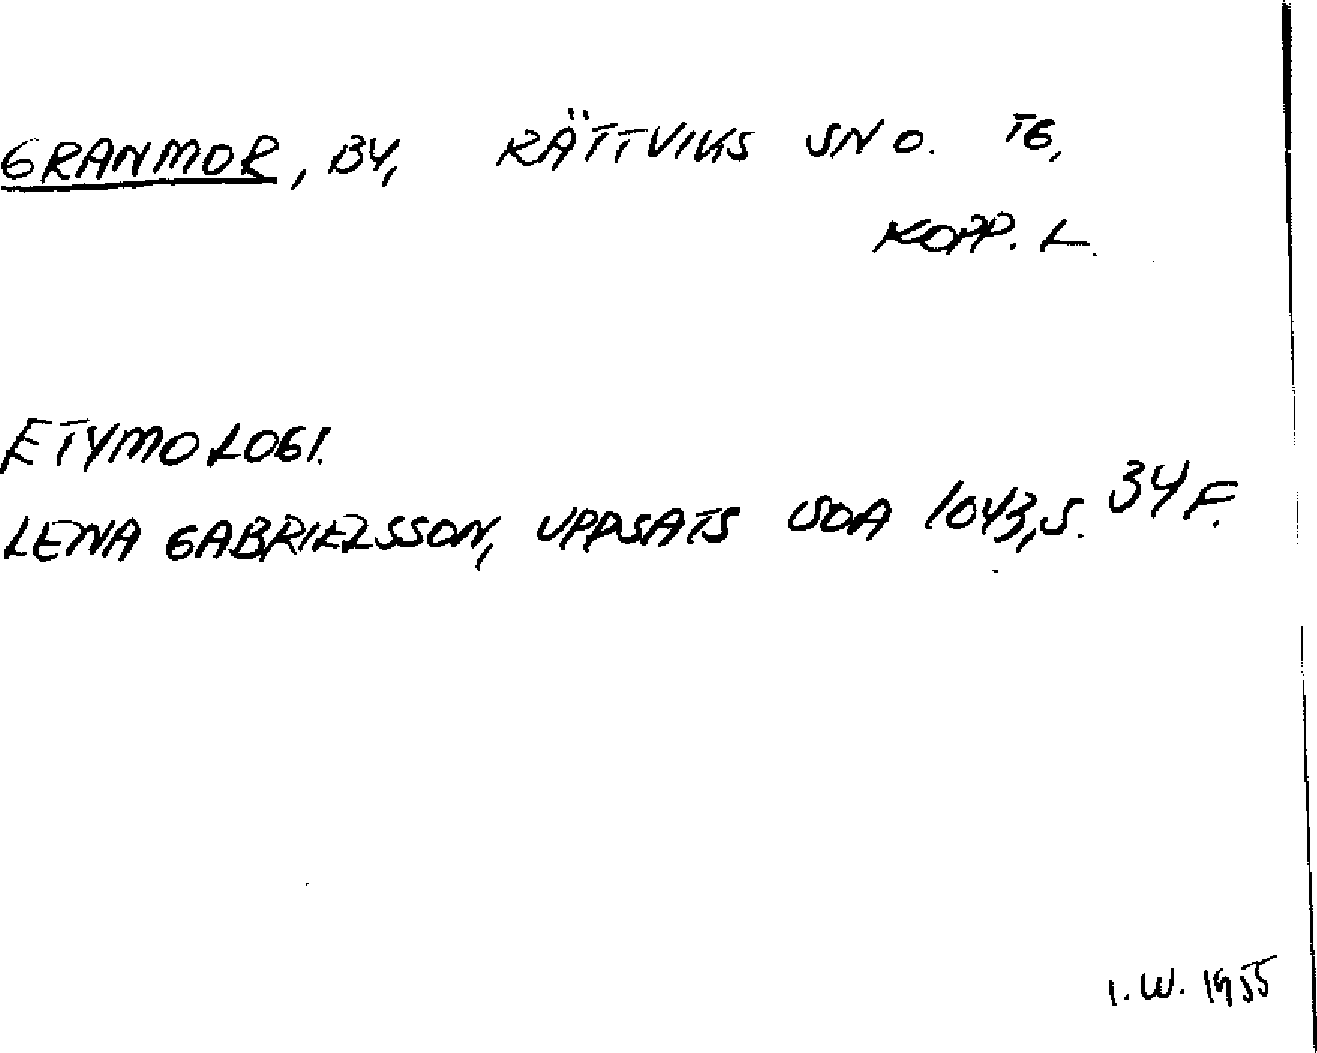 GRANMOR, BY, RÄTTVIKS SN O. TG,
KOPP. L.
ETYMOLOGI.
LENA GABRIELSSON, UPPSATS SOA 1043, S. 34 F.
I. W. 1955